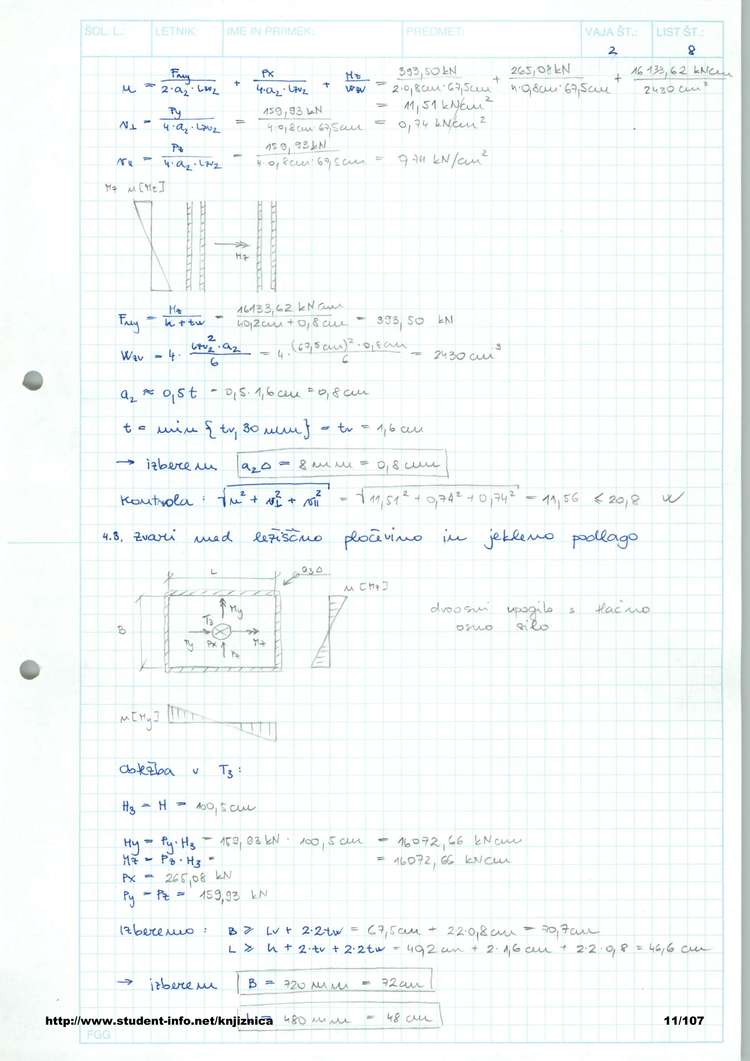 ŠOL. L.: LETNIK: IME IN PRIIMEK: PREDMET: VAJA ŠT.: 2 LIST ŠT.: 8
n = FMy / 2·a2·Lw2 + Px / 4·a2·Lw2 + Mz / Wzv = 393,50 kN / 2·0,8cm·67,5cm + 265,08 kN / 4·0,8cm·67,5cm + 16133,62 kNcm / 2430 cm³
= 11,51 kN/cm²
v⊥ = Py / 4·a2·Lw2 = 159,93 kN / 4·0,8cm·67,5cm = 0,74 kN/cm²
= Pz / 4·a2·Lw2 = 159,93 kN / 4·0,8cm·67,5cm = 0,74 kN/cm²
Mz n[Mz]
Mz
FMy = Mz / h + tw = 16133,62 kNcm / 40,2cm + 0,8cm = 393,50 kN
Wzv = 4· Lw2²·a2 / 6 = 4· (67,5cm)²·0,8cm / 6 = 2430 cm³
a2 ≈ 0,5t = 0,5·1,6cm = 0,8cm
t = min {tv, 30mm} = tv = 1,6cm
→ izberem a2⊿ = 8mm = 0,8cm
Kontrola: √n² + v⊥² + vII² = √11,51² + 0,74² + 0,74² = 11,56 ≤ 20,8
4.3. Zvari med ležiščno pločevino in jekleno podlago
L a3⊿
n[Mz]
dvoosni upogib s tlačno
osno silo
B T3 My Py Px Mz Pz
n[My]
obtežba v T3:
H3 = H = 100,5cm
My = Py·H3 = 159,93kN · 100,5cm = 16072,66 kNcm
Mz = Pz·H3 = = 16072,66 kNcm
Px = 265,08 kN
Py = Pz = 159,93 kN
Izberemo: B ≥ Lv + 2·2tw = 67,5cm + 2·2·0,8cm = 70,7cm
L ≥ h + 2·tv + 2·2tw = 40,2cm + 2·1,6cm + 2·2·0,8 = 46,6 cm
→ izberem B = 720mm = 72cm
480mm = 48cm
http://www.student-info.net/knjiznica 11/107
FGG